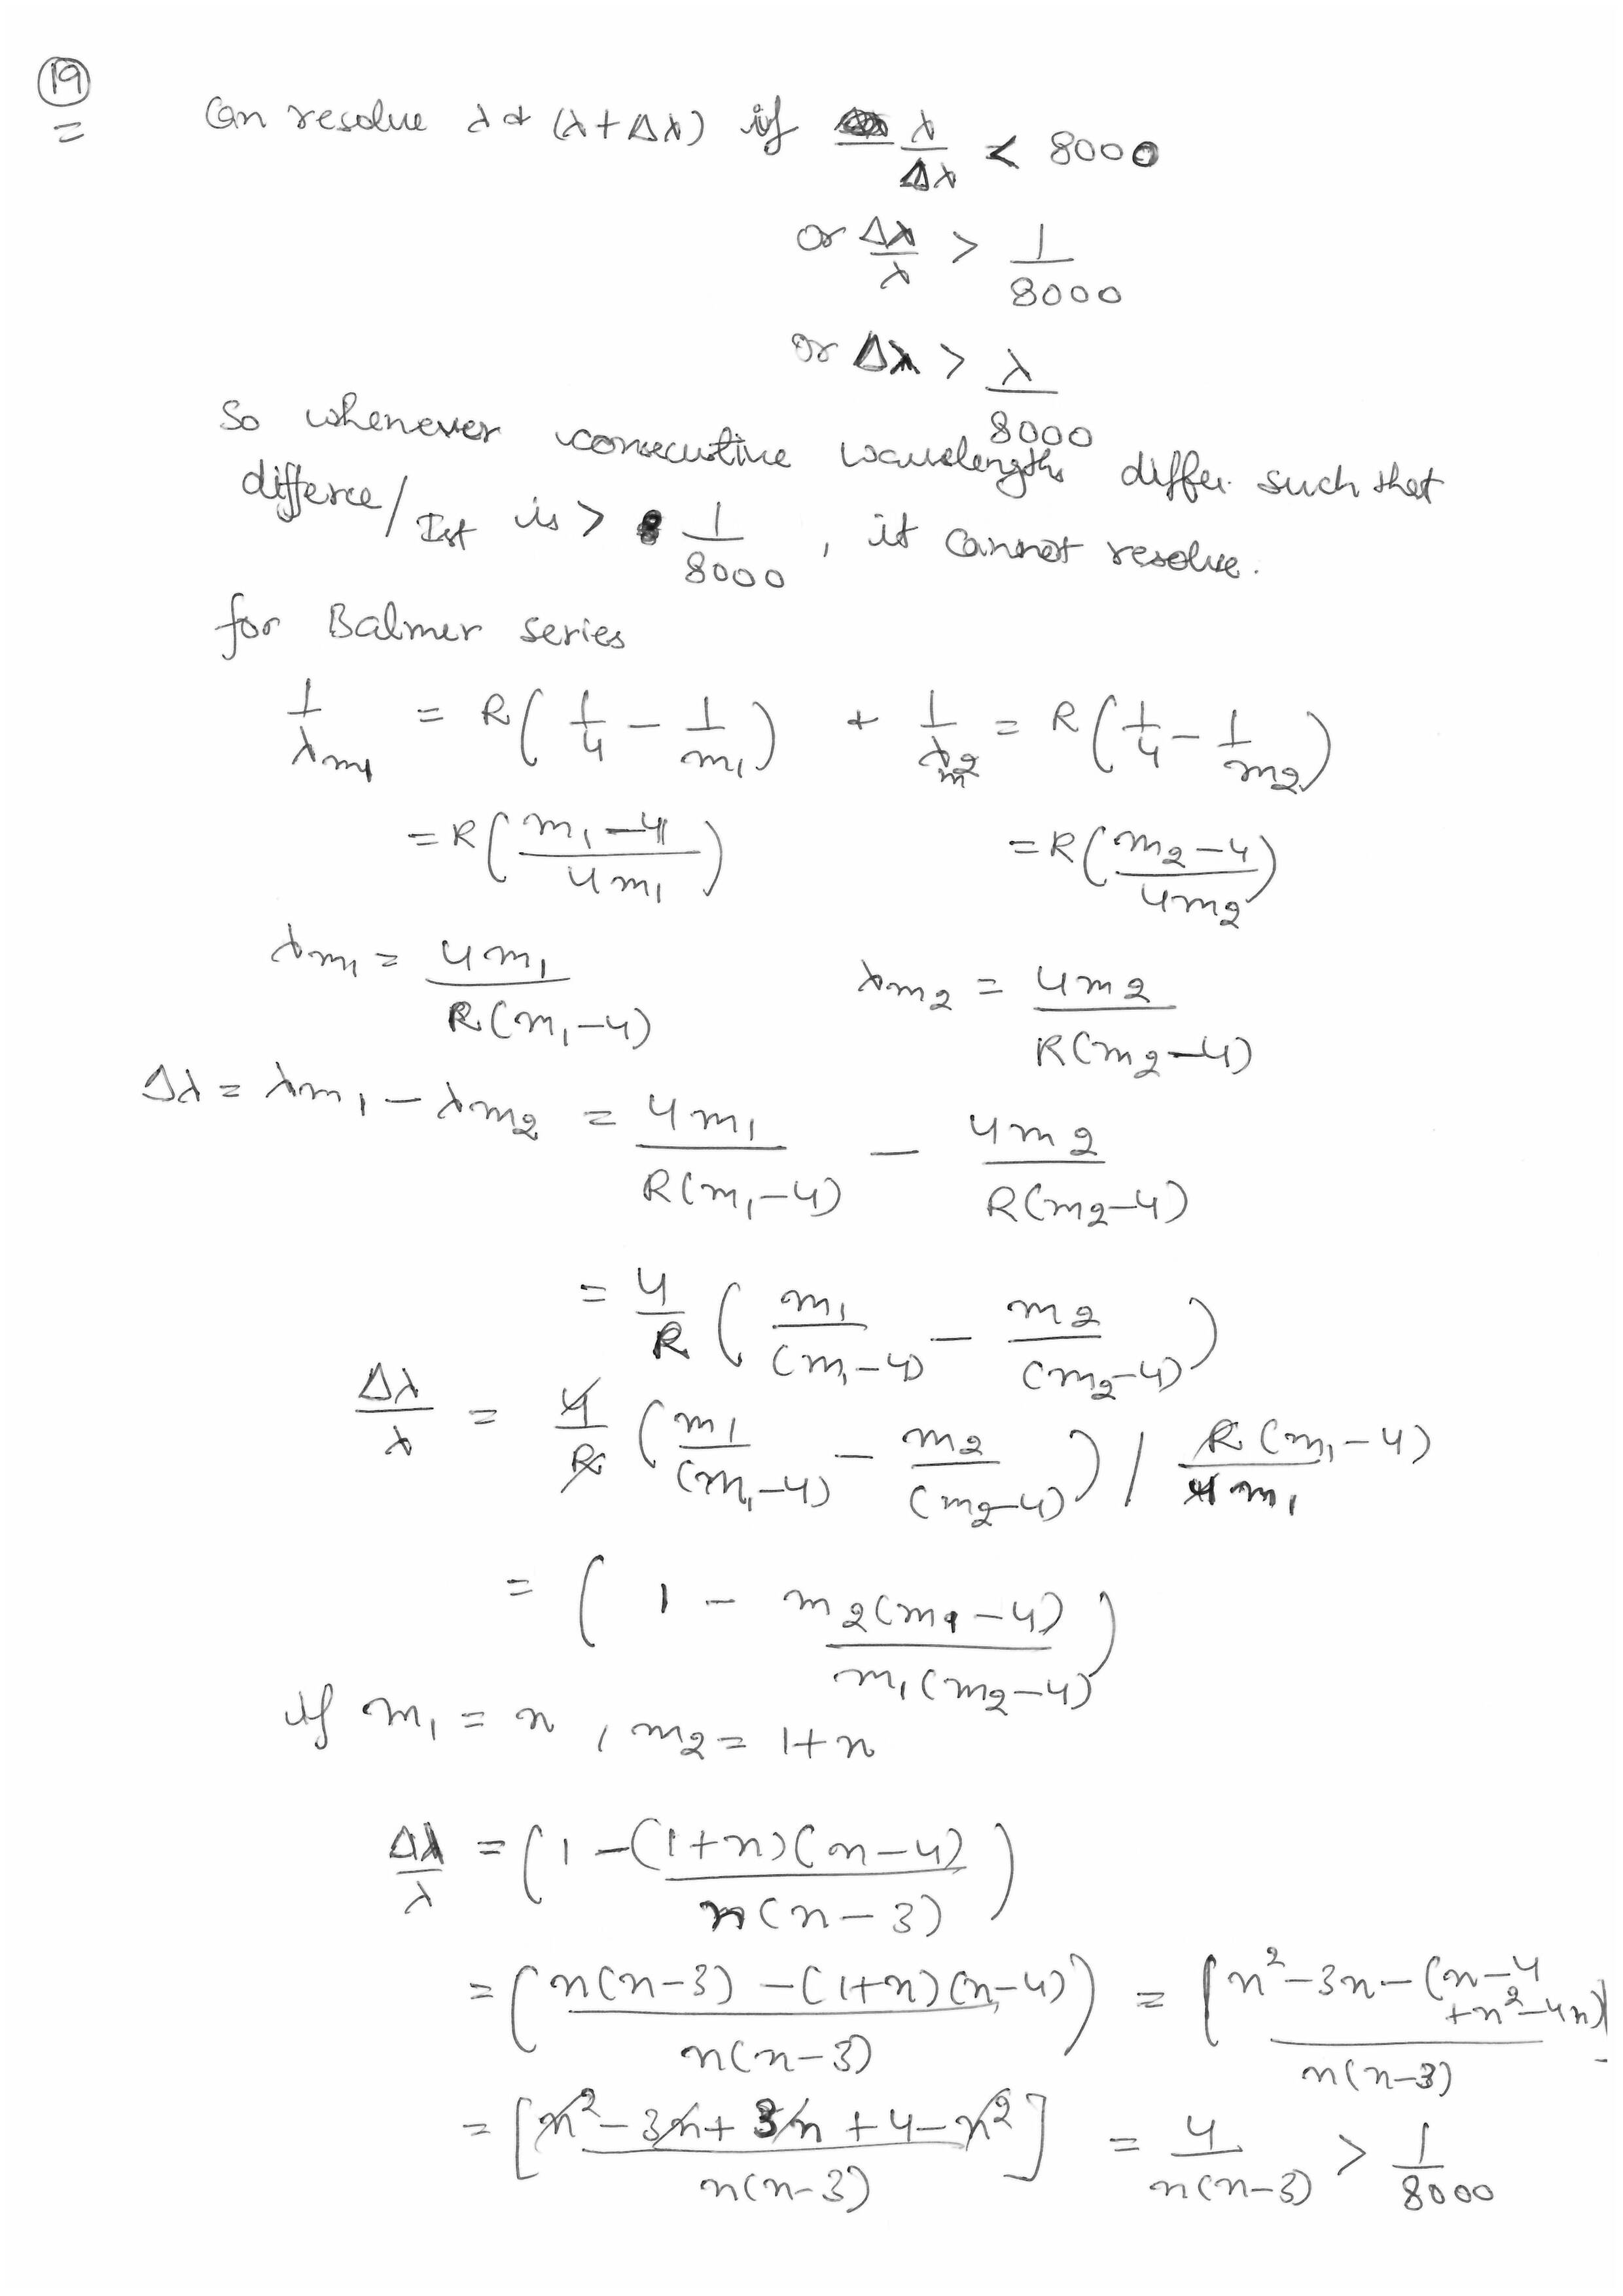 19
=
Can resolve λ & (λ+Δλ) if λ/Δλ < 8000
or Δλ/λ > 1/8000
or Δλ > λ/8000
So whenever consecutive wavelengths differ such that
differce/Ist is > 1/8000 , it cannot resolve.
for Balmer series
1/λm1 = R(1/4 - 1/m1) & 1/λm2 = R(1/4 - 1/m2)
= R((m1-4)/4m1) = R((m2-4)/4m2)
λm1 = 4m1/R(m1-4) λm2 = 4m2/R(m2-4)
Δλ = λm1 - λm2 = 4m1/R(m1-4) - 4m2/R(m2-4)
= 4/R (m1/(m1-4) - m2/(m2-4))
Δλ/λ = 4/R (m1/(m1-4) - m2/(m2-4)) / R(m1-4)/4m1
= (1 - m2(m1-4)/m1(m2-4))
if m1 = n , m2 = 1+n
Δλ/λ = (1 - (1+n)(n-4)/n(n-3))
= (n(n-3) - (1+n)(n-4)/n(n-3)) = [n²-3n-(n-4+n²-4n)/n(n-3)]
= [n²-3n+3n+4-n²/n(n-3)] = 4/n(n-3) > 1/8000